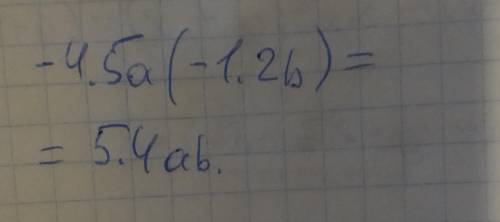 -4.5a(-1.2b)=
= 5.4ab.